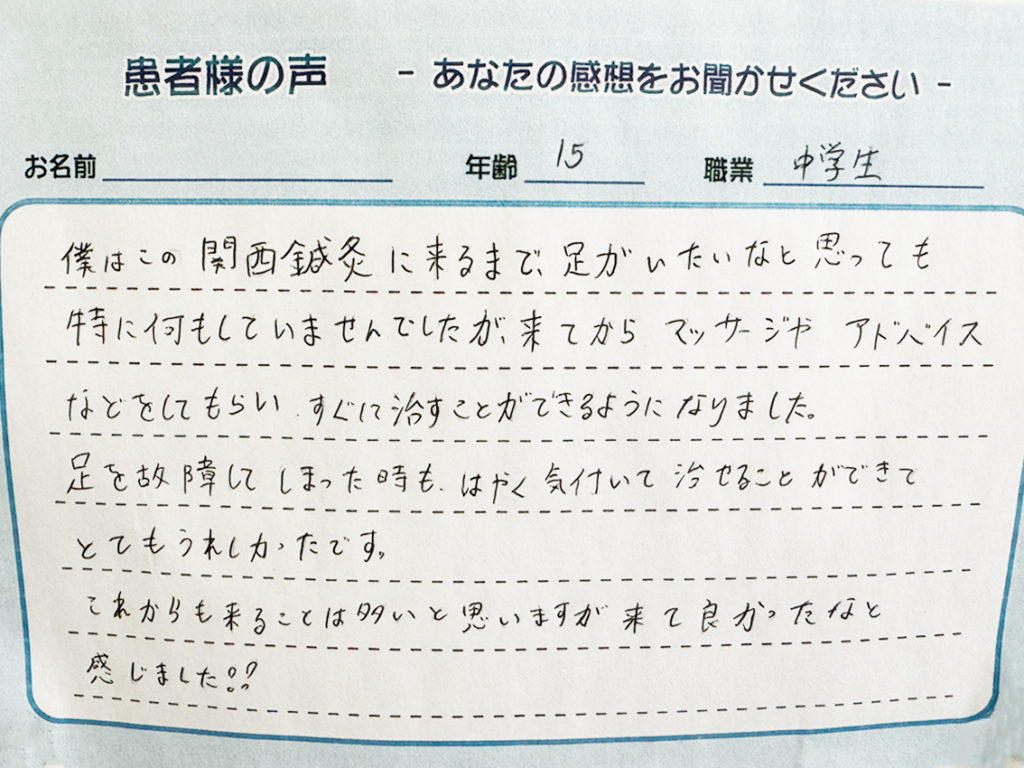 患者様の声 - あなたの感想をお聞かせください -
お名前 年齢 15 職業 中学生
僕はこの関西鍼灸に来るまで、足がいたいなと思っても
特に何もしていませんでしたが、来てから マッサージや アドバイス
などをしてもらい、すぐに治すことができるようになりました。
足を故障してしまった時も、はやく気付いて治せることができて
とてもうれしかったです。
これからも来ることは多いと思いますが来て良かったなと
感じました!!